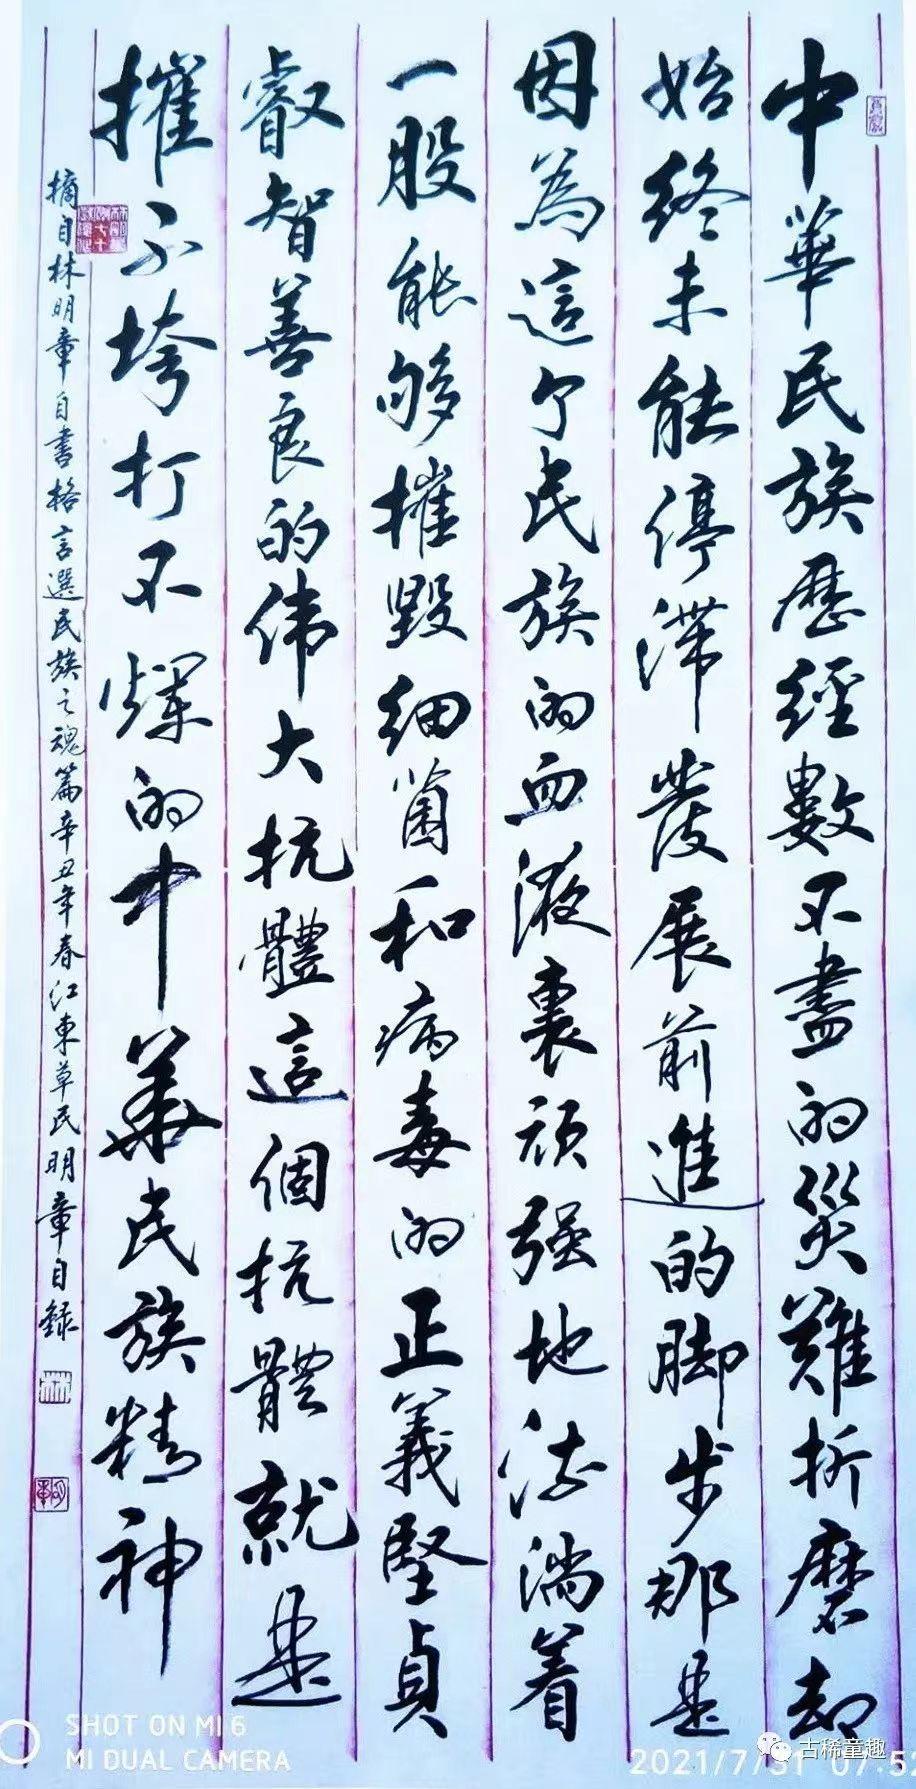 中華民族歷經數不盡的災難折磨却
始終未能停滯發展前進的脚步那是
因為這个民族的血液裏頑强地流淌着
一股能够摧毀细菌和病毒的正義堅貞
叡智善良的伟大抗體這個抗體就是
摧不垮打不爛的中華民族精神
摘自林明章自書格言選民族之魂篇辛丑年春江東草民明章自錄
SHOT ON MI 6
MI DUAL CAMERA
古稀童趣
2021/7/31 07:52